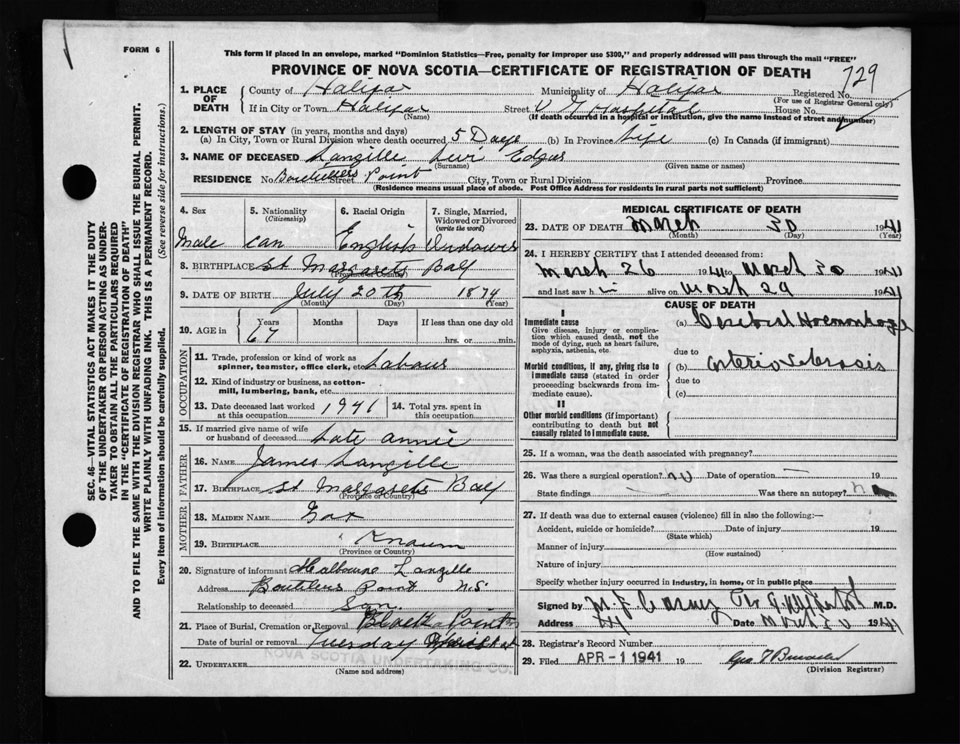 FORM 6
This form if placed in an envelope, marked "Dominion Statistics—Free, penalty for improper use $300," and properly addressed will pass through the mail "FREE"
PROVINCE OF NOVA SCOTIA—CERTIFICATE OF REGISTRATION OF DEATH
729
1. PLACE OF DEATH
County of Halifax Municipality of Halifax Registered No.
(For use of Registrar General only)
If in City or Town Halifax Street V G Hospital House No.
(Name) (If death occurred in a hospital or institution, give the name instead of street and number)
2. LENGTH OF STAY (in years, months and days)
(a) In City, Town or Rural Division where death occurred 5 Days (b) In Province Life (c) In Canada (if immigrant)
3. NAME OF DECEASED Langille Edgar
(Surname) (Given name or names)
RESIDENCE No. Street Point City, Town or Rural Division Province
(Residence means usual place of abode. Post Office Address for residents in rural parts not sufficient)
SEC. 46—VITAL STATISTICS ACT MAKES IT THE DUTY
OF THE UNDERTAKER OR PERSON ACTING AS UNDER-
TAKER TO OBTAIN ALL THE PARTICULARS REQUIRED
IN THE "CERTIFICATE OF REGISTRATION OF DEATH"
AND TO FILE THE SAME WITH THE DIVISION REGISTRAR WHO SHALL ISSUE THE BURIAL PERMIT.
WRITE PLAINLY WITH UNFADING INK. THIS IS A PERMANENT RECORD.
Every item of information should be carefully supplied. (See reverse side for instructions.)
4. Sex 5. Nationality (Citizenship) 6. Racial Origin 7. Single, Married, Widowed or Divorced (write the word)
Male Can English Widower
8. BIRTHPLACE St Margarets Bay
(Province or Country)
9. DATE OF BIRTH July 20th 1874
(Month) (Day) (Year)
10. AGE in Years Months Days If less than one day old
67 hrs. or min.
OCCUPATION
11. Trade, profession or kind of work as spinner, teamster, office clerk, etc. Labour
12. Kind of industry or business, as cotton-mill, lumbering, bank, etc.
13. Date deceased last worked at this occupation 1941 14. Total yrs. spent in this occupation
15. If married give name of wife or husband of deceased Late Annie
FATHER
16. NAME James Langille
17. BIRTHPLACE St Margarets Bay
(Province or Country)
MOTHER
18. MAIDEN NAME
19. BIRTHPLACE
(Province or Country)
20. Signature of informant Langille
Address Point N.S.
Relationship to deceased Son
21. Place of Burial, Cremation or Removal Black Point
Date of burial or removal Tuesday
22. UNDERTAKER NOVA SCOTIA UNDERTAKING CO.
(Name and address)
MEDICAL CERTIFICATE OF DEATH
23. DATE OF DEATH March 30 1941
(Month) (Day) (Year)
24. I HEREBY CERTIFY that I attended deceased from:
March 26 1941 to March 30 1941
and last saw h im alive on March 29 1941
CAUSE OF DEATH
I
Immediate cause
Give disease, injury or complication which caused death, not the mode of dying, such as heart failure, asphyxia, asthenia, etc.
(a) Cerebral Haemorrhage
due to
Morbid conditions, if any, giving rise to immediate cause (stated in order proceeding backwards from immediate cause).
(b) Arterio Sclerosis
due to
(c)
II
Other morbid conditions (if important) contributing to death but not causally related to immediate cause.
25. If a woman, was the death associated with pregnancy?
26. Was there a surgical operation? no Date of operation 19
State findings Was there an autopsy?
27. If death was due to external causes (violence) fill in also the following:—
Accident, suicide or homicide? Date of injury 19
(State which)
Manner of injury
(How sustained)
Nature of injury
Specify whether injury occurred in industry, in home, or in public place
Signed by M.D.
Address Date March 30 1941
28. Registrar's Record Number
29. Filed APR - 1 1941 19 Geo
(Division Registrar)